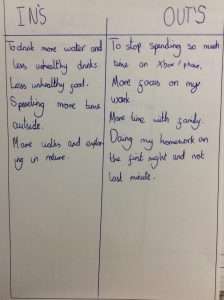 IN'S
To drink more water and
less unhealthy drinks
Less unhealthy food.
Spending more time
outside.
More walks and explor-
ing in nature.
OUT'S
To stop spending so much
time on Xbox/phone.
More focus on my
work.
More time with family.
Doing my homework on
the first night and not
last minute.